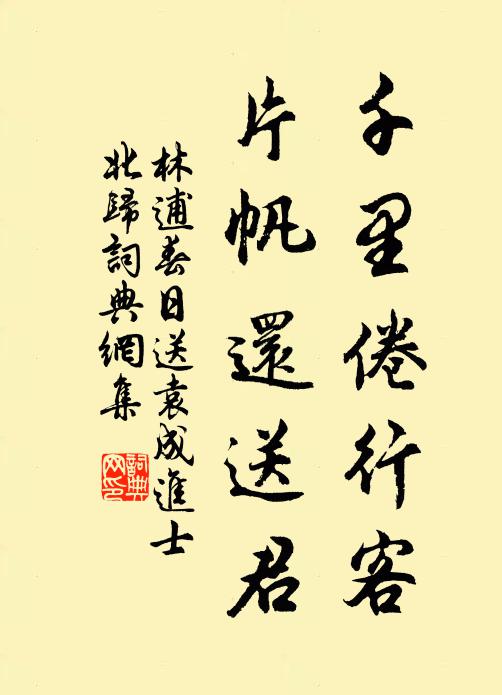 千里倦行客
片帆還送君
林逋春日送袁成進士
北歸詞典網集
詞典網印